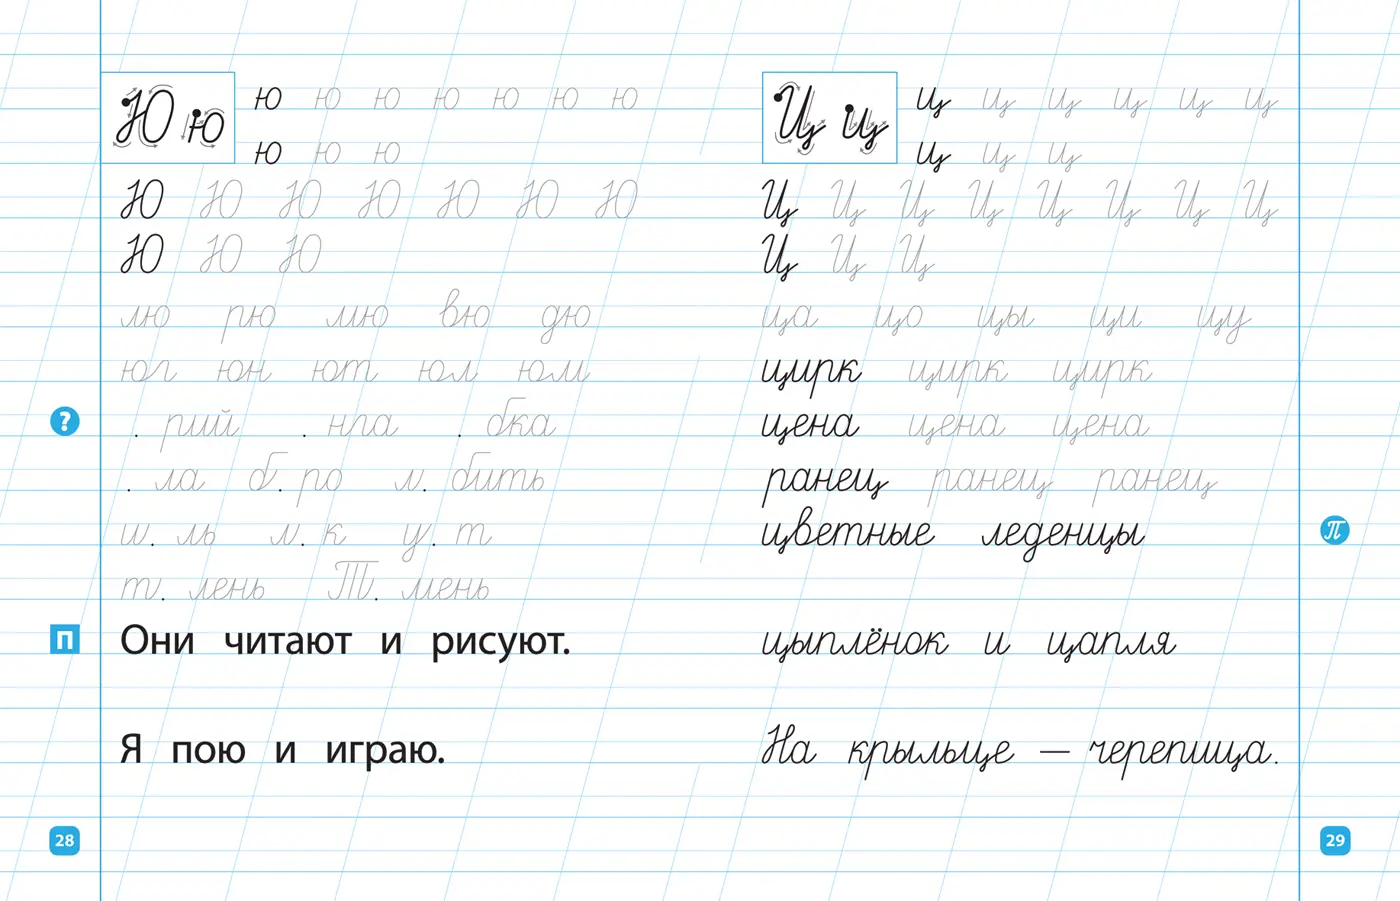 Ю ю ю ю ю ю ю ю ю
ю ю ю
Ю Ю Ю Ю Ю Ю Ю
Ю Ю Ю
лю рю мю вю дю
юг юн ют юл юм
? . рий . нга . бка
. ла б. ро л. бить
ш. ль л. к у. т
т. лень Т. мень
П Они читают и рисуют.
Я пою и играю.
28
Ц ц ц ц ц ц ц ц
ц ц ц
Ц Ц Ц Ц Ц Ц Ц Ц
Ц Ц Ц
ца цо цы ци цу
цирк цирк цирк
цена цена цена
ранец ранец ранец
цветные леденцы П
цыплёнок и цапля
На крыльце — черепица.
29